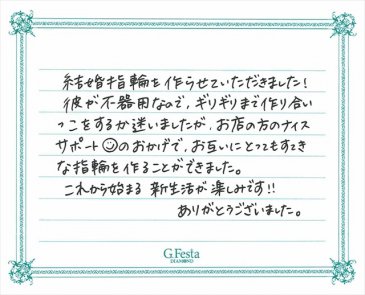 結婚指輪を作らせていただきました!
彼が不器用なので、ギリギリまで作り合い
っこをするか迷いましたが、お店の方のナイス
サポート☺のおかげで、お互いにとってもすてき
な指輪を作ることができました。
これから始まる 新生活が楽しみです!!
ありがとうございました。
G.Festa
DIAMOND